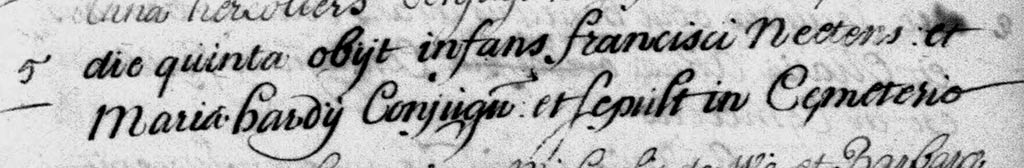 5 die quinta obijt infans francisci Neetens et
Maria hardij Conjugu: et sepult in Cemeterio
et Barbara